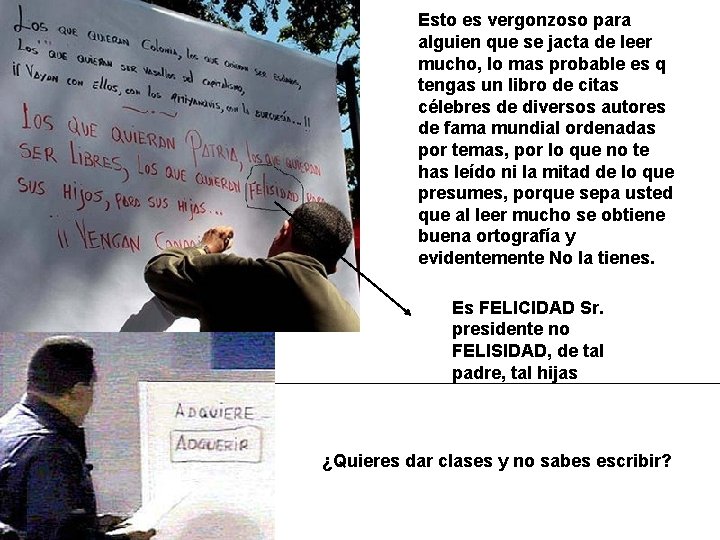 Los que quieran Colonia, los que quieran ser esclavos,
los que quieran ser vasallos del capitalismo,
¡¡Vayan con ellos, con los pitiyanquis, con la burguesía...!!
Los que quieran Patria, los que quieran
ser libres, los que quieran felisidad para
sus hijos, para sus hijas...
¡¡Vengan
Esto es vergonzoso para
alguien que se jacta de leer
mucho, lo mas probable es q
tengas un libro de citas
célebres de diversos autores
de fama mundial ordenadas
por temas, por lo que no te
has leído ni la mitad de lo que
presumes, porque sepa usted
que al leer mucho se obtiene
buena ortografía y
evidentemente No la tienes.
Es FELICIDAD Sr.
presidente no
FELISIDAD, de tal
padre, tal hijas
ADQUIERE
ADQUERIR
¿Quieres dar clases y no sabes escribir?